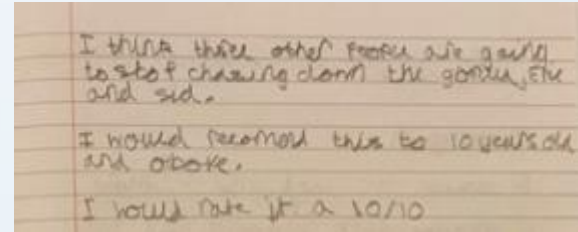 I think three other people are going
to stop chasing down the Eve
and sid.
I would recomend this to 10 years old
and above.
I would rate it a 10/10